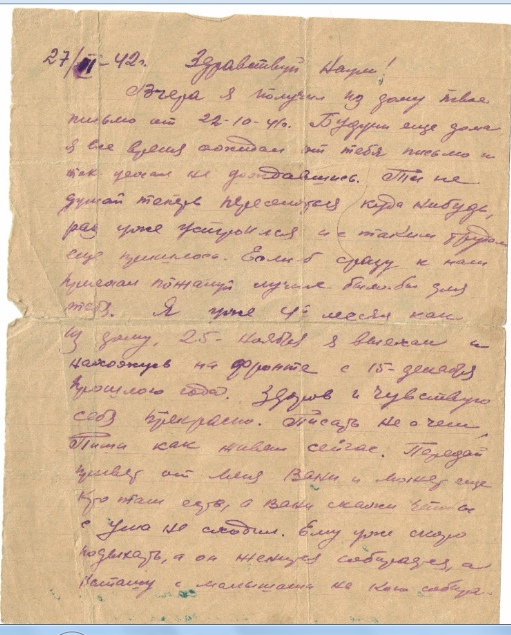 27/II-42г. Здравствуй Наум!
Вчера я получил из дому твое
письмо от 22-10-41г. Будучи еще дома
я все время ожидал от тебя письмо и
так уехал не дождавшись. Ты не
думай теперь переселяться куда нибудь,
раз уже устроился и с таким трудом
еще пришлось. Если б сразу к нам
приехал пожалуй лучше было-бы для
тебя. Я уже 4й месяц как
из дому, 25-ноября я выехал и
нахожусь на фронте с 15-декабря
прошлого года. Здоров и чувствую
себя прекрасно. Писать не о чем,
Пиши как живет сейчас. Передай
привет от меня Вани и может еще
кто там есть, а Вани скажи чтобы
с ума не сходил. Ему уже скоро
подыхать, а он жениться собирается, а
с малышами на кого